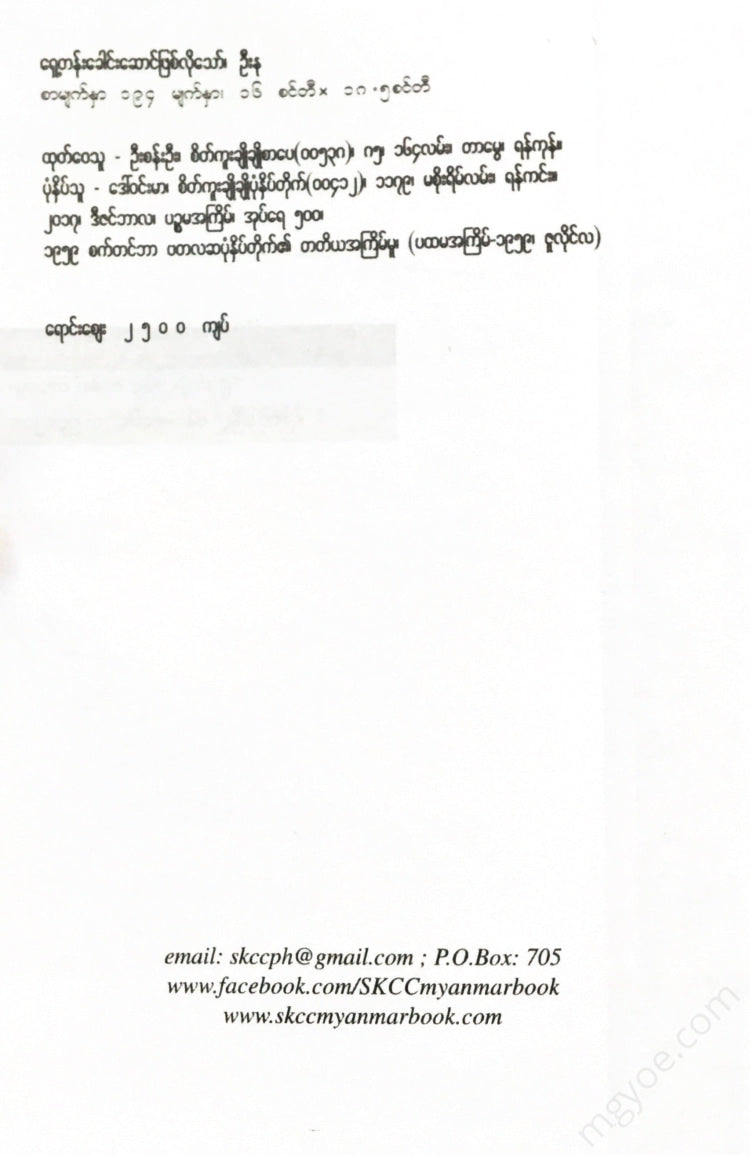 ရှေ့တန်းခေါင်းဆောင်ဖြစ်လိုသော်၊ ဦးနု
စာမျက်နှာ ၁၉၄ မျက်နှာ၊ ၁၆ စင်တီ× ၁၀.၅စင်တီ
ထုတ်ဝေသူ - ဦးစန်းဦး၊ စိတ်ကူးချိုချိုစာပေ(၀၀၅၃၈)၊ ၈၅၊ ၁၆၄လမ်း၊ တာမွေ၊ ရန်ကုန်။
ပုံနှိပ်သူ - ဒေါ်ဝင်းမာ၊ စိတ်ကူးချိုချိုပုံနှိပ်တိုက်(၀၀၄၁၂)၊ ၁၁၇၉၊ မစိုးရိမ်လမ်း၊ ရန်ကင်း။
၂၀၁၇၊ ဒီဇင်ဘာလ၊ ပဉ္စမအကြိမ်၊ အုပ်ရေ ၅၀၀၊
၁၉၅၉ စက်တင်ဘာ ဝတာလဆပုံနှိပ်တိုက်၏ တတိယအကြိမ်မူ၊ (ပထမအကြိမ်-၁၉၅၉၊ ဇူလိုင်လ)
ရောင်းဈေး ၂၅၀၀ ကျပ်
email: skccph@gmail.com ; P.O.Box: 705
www.facebook.com/SKCCmyanmarbook
www.skccmyanmarbook.com
mgyoe.com